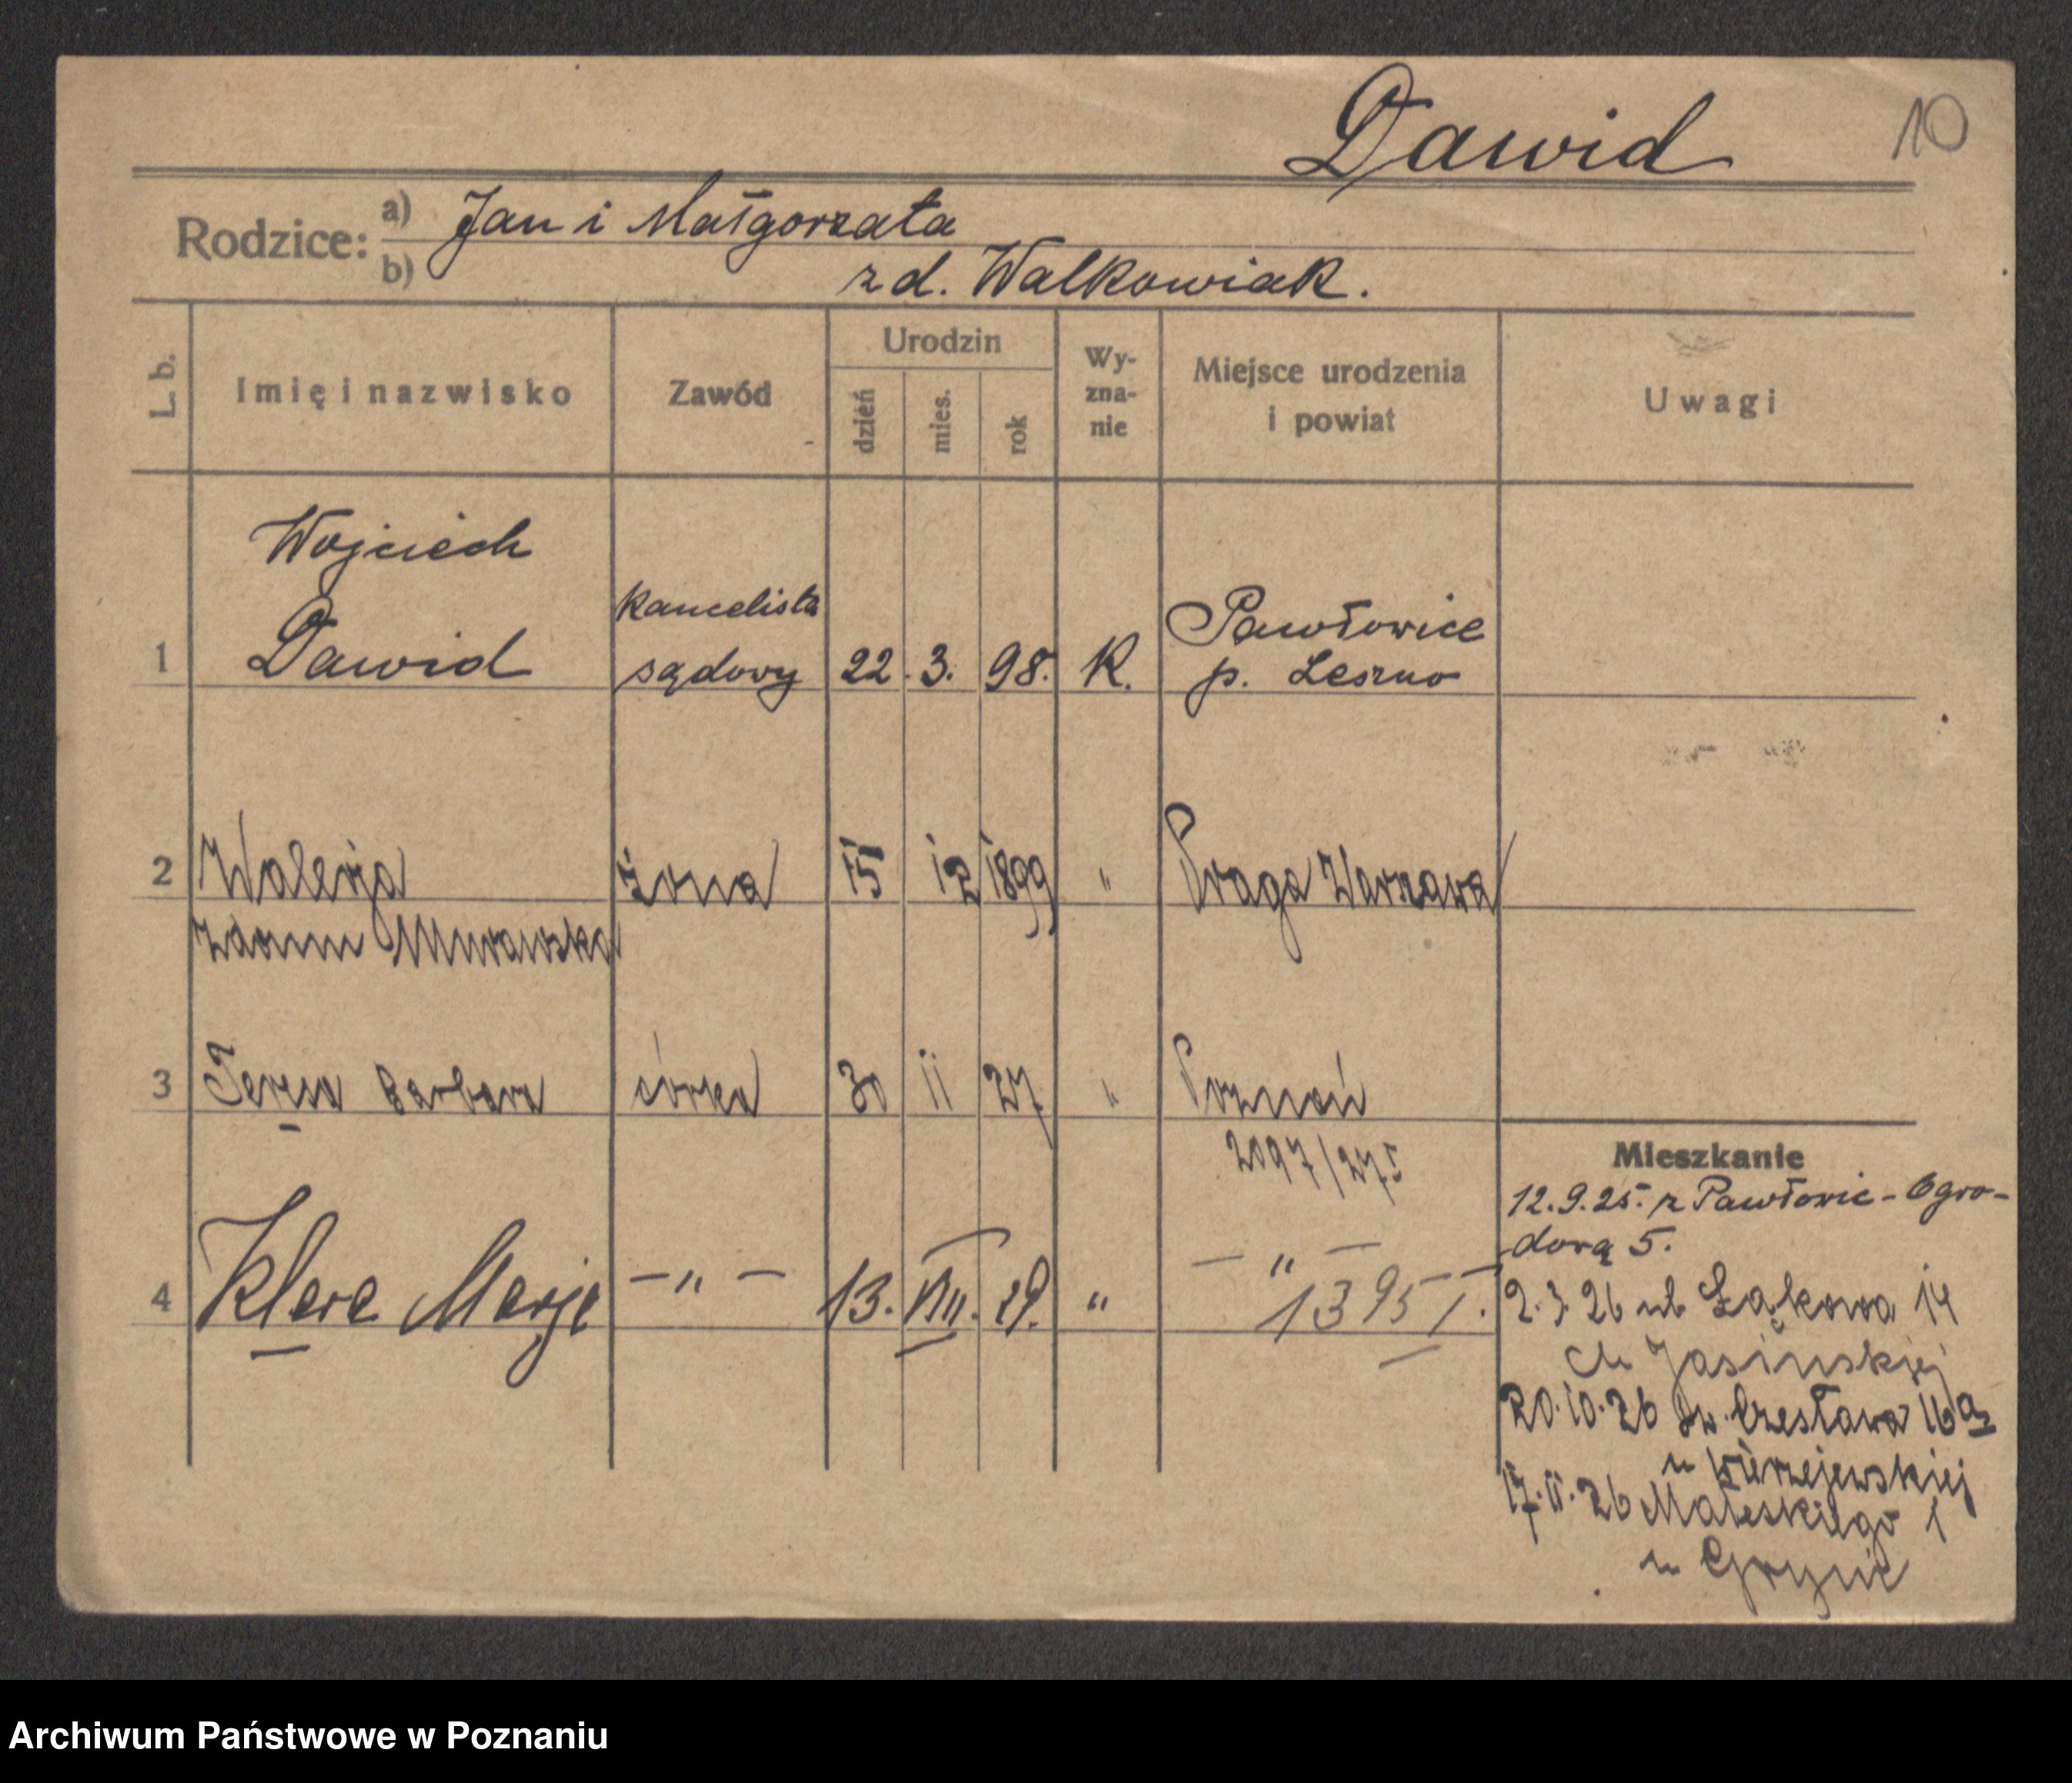 Dawid 10
Rodzice: a) Jan i Małgorzata
b) z d. Walkowiak.
L. b. Imię i nazwisko Zawód Urodzin dzień mies. rok Wy-zna-nie Miejsce urodzenia i powiat Uwagi
Wojciech
kancelista Pawłowice
1 Dawid sądowy 22. 3. 98. K. p. Leszno
2 Walerja żona 15 12 1899 " Praga Warszawa
Murawska
3 Teresa Barbara córka 30 11 27 " Poznań
2097/27 I
4 Klara Marja — " — 13. VIII. 29. " — " —
1395 I.
Mieszkanie
12.9.25. z Pawłowic - Ogro-
dową 5.
2.3.26 ul Łąkowa 14
Jasińskiej
20.10.26 Św. Czesława 16a
u Wierzejewskiej
17.11.26 Matejskiego 1
u
Archiwum Państwowe w Poznaniu